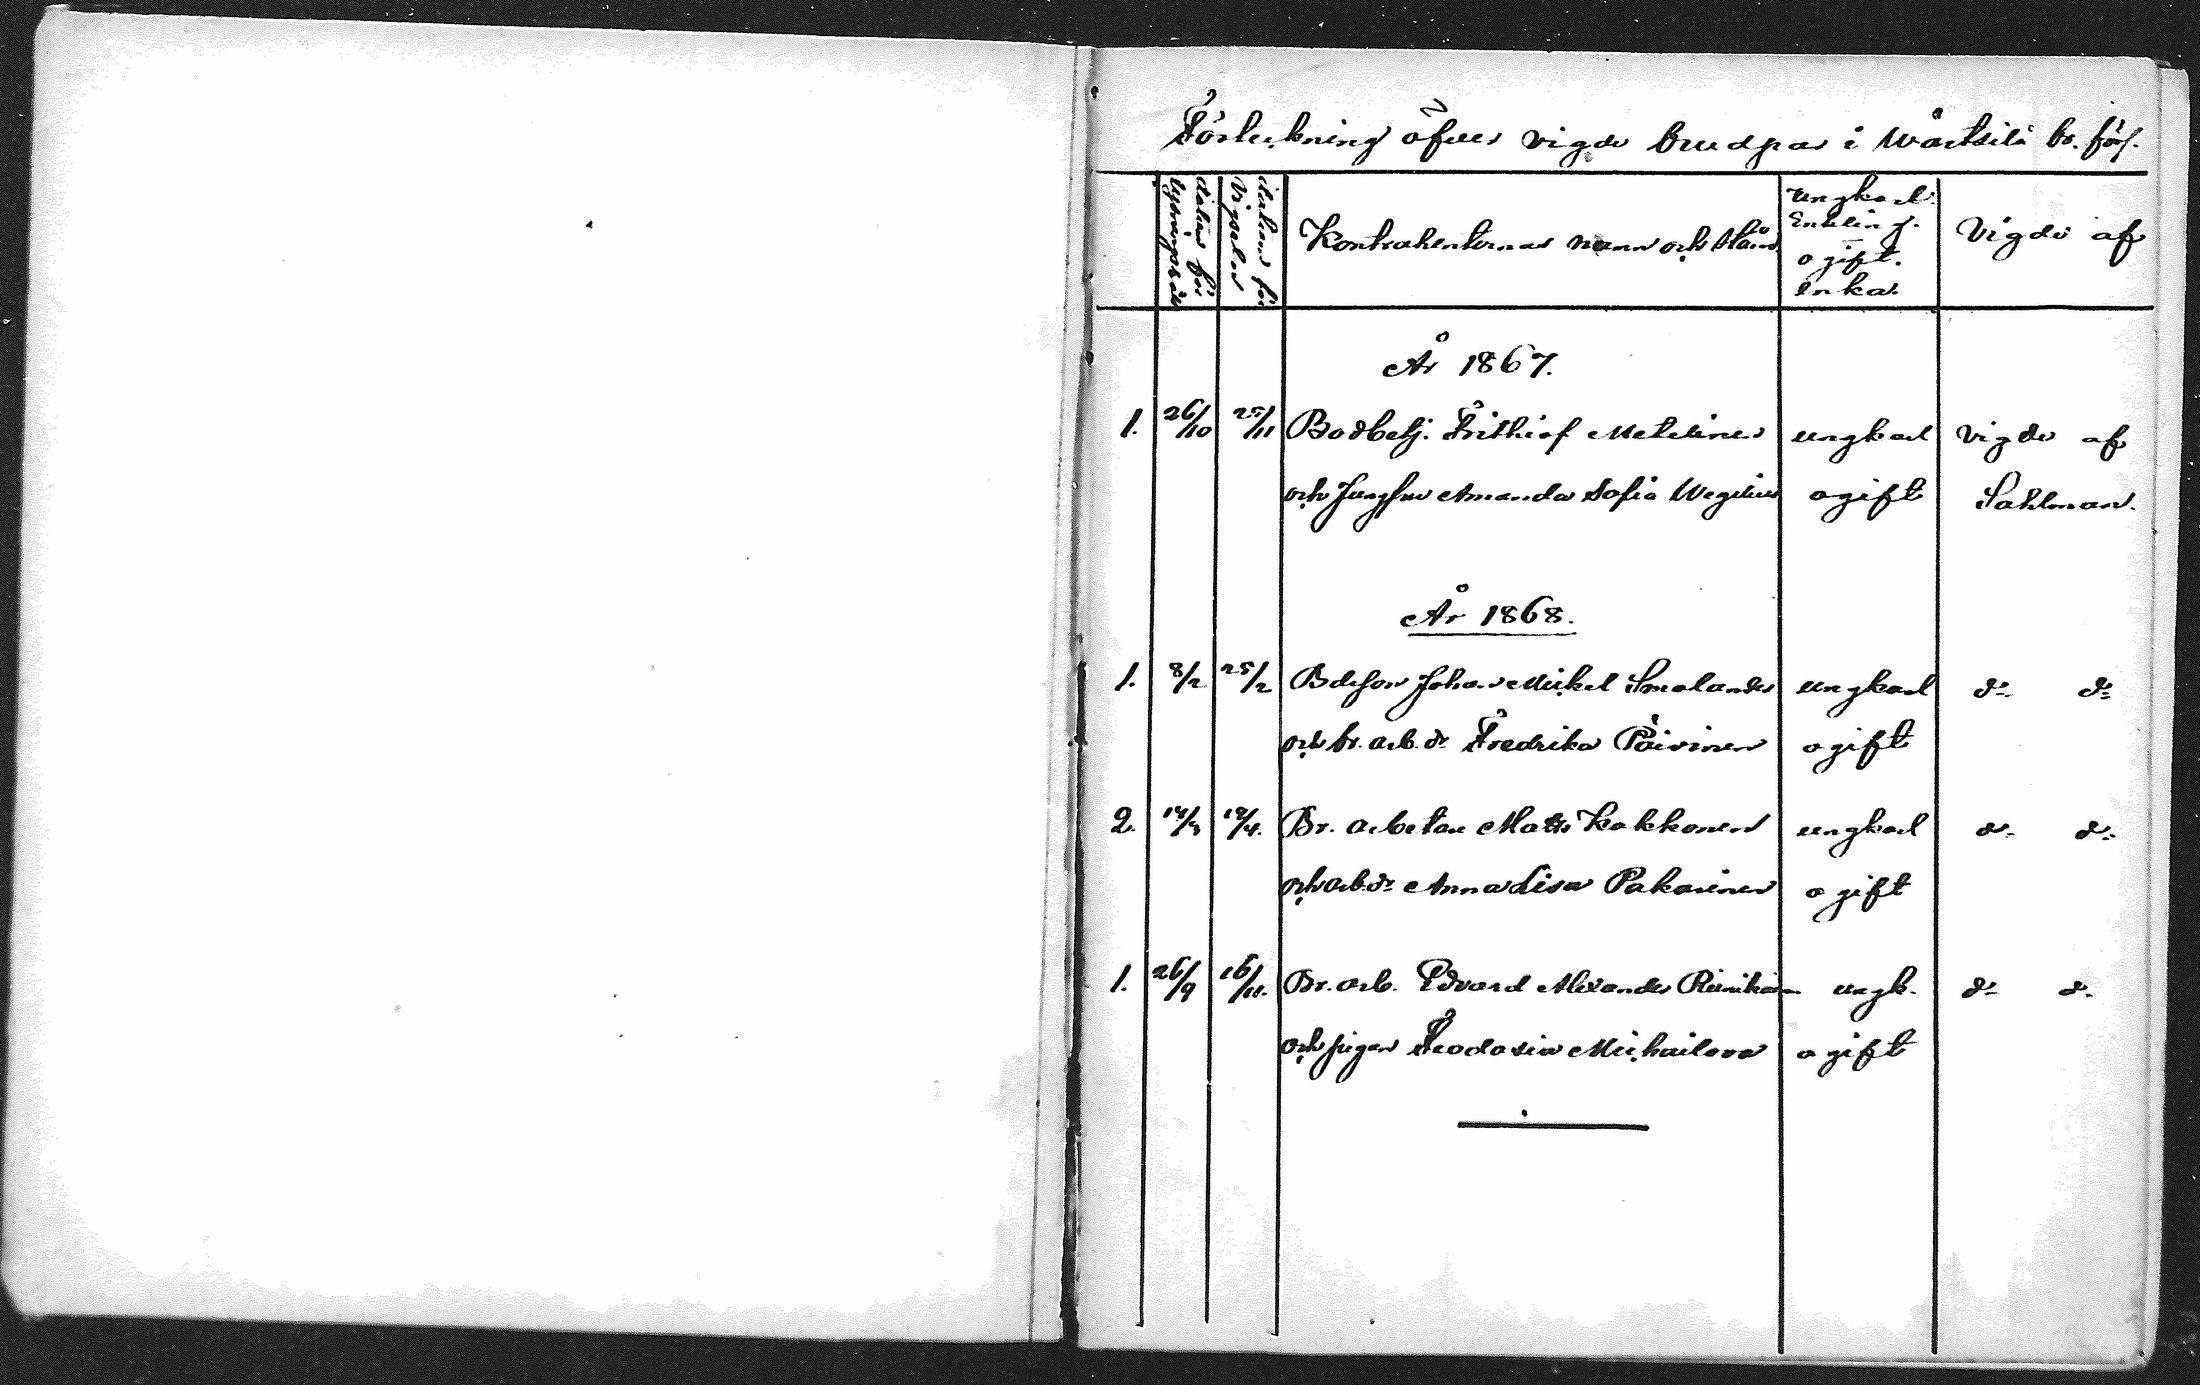 Förteckning öfver vigde brudpar i Wärtsilä br. förs.
datum för lysningssök
datum för Vigseln
Kontrahenternas namn och stånd
ungkarl. Enkling. ogift. enka.
Vigde af
År 1867.
1. 26/10 25/11 Bodbetj. Frithiof Metelinen ungkarl vigde af
och Jungfru Amanda Sofia Wegelius ogift Sahlman.
År 1868.
1. 8/2 25/2 Bdeson Johan Mickel Smolander ungkarl d:o d:o
och br. arb. dr Fredrika Päivinen ogift
2. 14/3 12/4. Br. arbetare Matts Kakkonen ungkarl d:o d:o
och arb. dr Anna Lisa Pakarinen ogift
1. 26/9 16/11. Br. arb. Edvard Alexander ungk. d:o d:o
och pigan Feodosia Michailova ogift